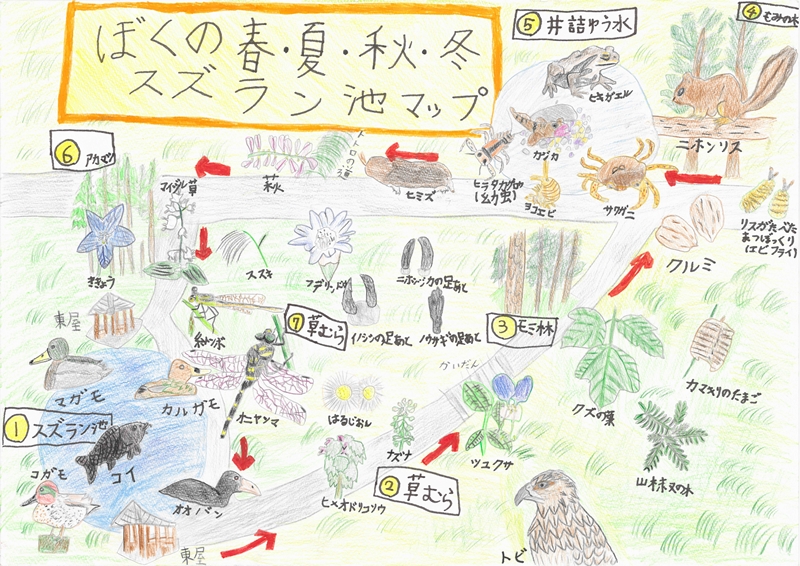 ぼくの春・夏・秋・冬
スズラン池マップ
⑤井詰ゆう水
ヒキガエル
④もみの木
ニホンリス
カジカ
ヒラタカゲロウ
(幼虫)
ヨコエビ
サワガニ
リスがたべた
まつぼっくり
(エビフライ)
クルミ
⑥アカマツ
マイヅル草
萩
トトロの道
ヒミズ
ききょう
ススキ
ニホンジカの足あと
イノシシの足あと
ノウサギの足あと
③モミ林
⑦草むら
東屋
マガモ
カルガモ
オニヤンマ
はるじおん
かいだん
ナズナ
ツユクサ
クズの葉
カマキリのたまご
①スズラン池
コイ
コガモ
オオバン
ヒメオドリコソウ
②草むら
東屋
トビ